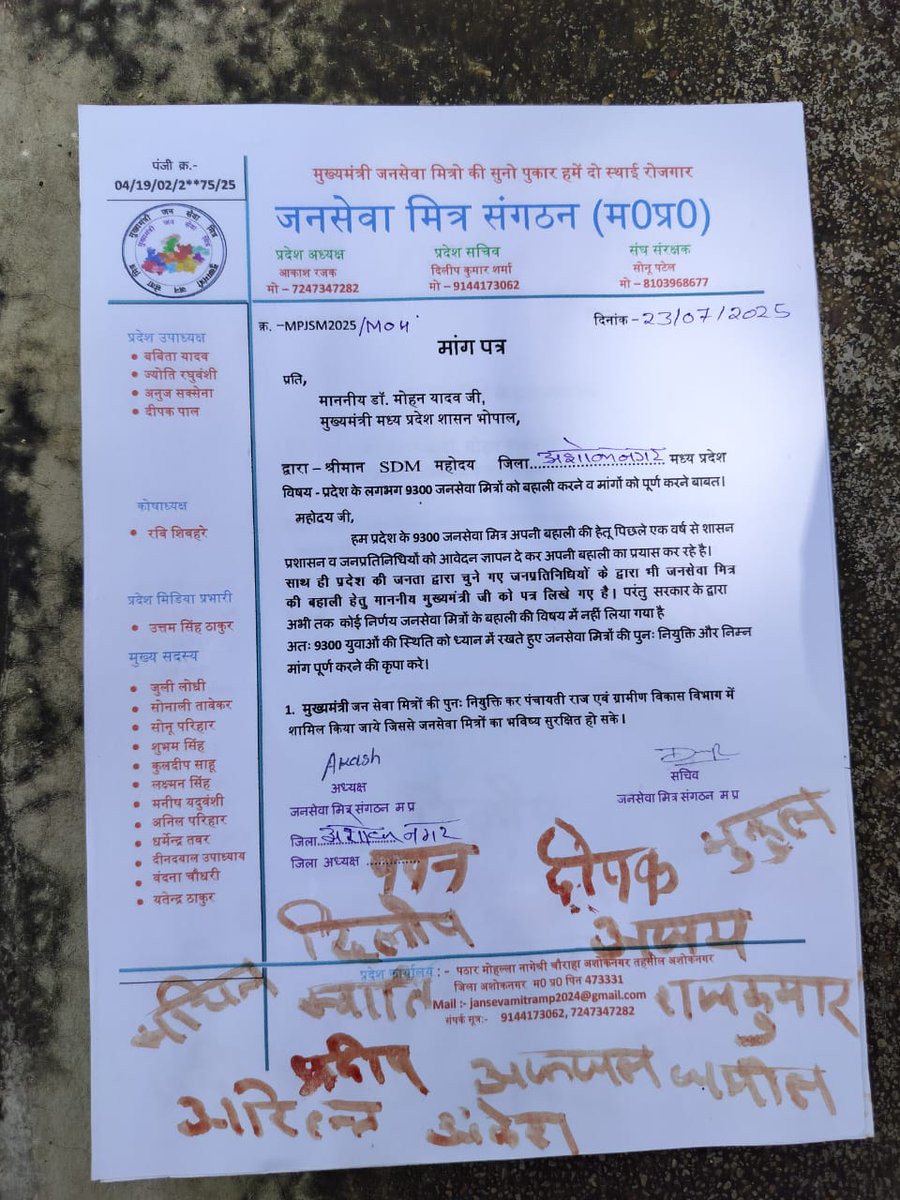 पंजी क्र.-
04/19/02/2**75/25
मुख्यमंत्री जनसेवा मित्रो की सुनो पुकार हमें दो स्थाई रोजगार
जनसेवा मित्र संगठन (म0प्र0)
प्रदेश अध्यक्ष
आकाश रजक
मो – 7247347282
प्रदेश सचिव
दिलीप कुमार शर्मा
मो – 9144173062
संघ संरक्षक
सोनू पटेल
मो – 8103968677
मुख्यमंत्री जन सेवा मित्र
क्र. –MPJSM2025/M04
दिनांक - 23/07/2025
मांग पत्र
प्रति,
माननीय डॉ. मोहन यादव जी,
मुख्यमंत्री मध्य प्रदेश शासन भोपाल,
द्वारा – श्रीमान SDM महोदय जिला अशोकनगर मध्य प्रदेश
विषय - प्रदेश के लगभग 9300 जनसेवा मित्रों को बहाली करने व मांगों को पूर्ण करने बाबत।
महोदय जी,
हम प्रदेश के 9300 जनसेवा मित्र अपनी बहाली की हेतू पिछले एक वर्ष से शासन
प्रशासन व जनप्रतिनिधियों को आवेदन ज्ञापन दे कर अपनी बहाली का प्रयास कर रहे है।
साथ ही प्रदेश की जनता द्वारा चुने गए जनप्रतिनिधियों के द्वारा भी जनसेवा मित्र
की बहाली हेतु माननीय मुख्यमंत्री जी को पत्र लिखे गए है। परंतु सरकार के द्वारा
अभी तक कोई निर्णय जनसेवा मित्रों के बहाली की विषय में नहीं लिया गया है
अतः 9300 युवाओं की स्थिति को ध्यान में रखते हुए जनसेवा मित्रों की पुनः नियुक्ति और निम्न
मांग पूर्ण करने की कृपा करे।
1. मुख्यमंत्री जन सेवा मित्रों की पुनः नियुक्ति कर पंचायती राज एवं ग्रामीण विकास विभाग में
शामिल किया जाये जिससे जनसेवा मित्रों का भविष्य सुरक्षित हो सके।
Akash
अध्यक्ष
जनसेवा मित्र संगठन म प्र
जिला अशोकनगर
जिला अध्यक्ष ............
सचिव
जनसेवा मित्र संगठन म प्र
प्रदेश उपाध्यक्ष
बबिता यादव
ज्योति रघुवंशी
अनुज सक्सेना
दीपक पाल
कोषाध्यक्ष
रवि शिवहरे
प्रदेश मिडिया प्रभारी
उत्तम सिंह ठाकुर
मुख्य सदस्य
जुली लोधी
सोनाली तावेकर
सोनू परिहार
शुभम सिंह
कुलदीप साहू
लक्ष्मन सिंह
मनीष यदुवंशी
अनिल परिहार
धर्मेन्द्र तवर
दीनदयाल उपाध्याय
वंदना चौधरी
यतेन्द्र ठाकुर
दीपक मुकुल
दिलीप अजय
स्वाति राजकुमार
प्रदीप अफजल
प्रदेश कार्यालय : - पठार मोहल्ला नामेधी चौराहा अशोकनगर तहसील अशोकनगर
जिला अशोकनगर म0 प्र0 पिन 473331
Mail :- jansevamitramp2024@gmail.com
संपर्क सूत्र:- 9144173062, 7247347282